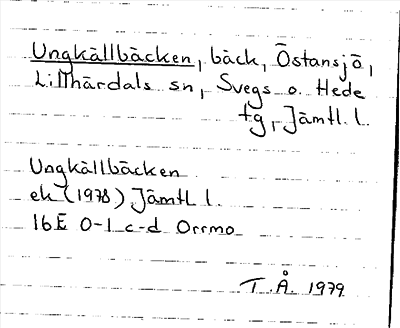 Ungkällbäcken, bäck, Östansjö,
Lillhärdals sn, Svegs o. Hede
tg, Jämtl. l.
Ungkällbäcken
ek (1978) Jämtl l.
16E 0-1 c-d Orrmo
T. Å. 1979